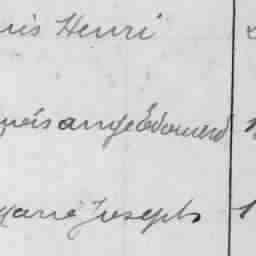 uis Henri
çois ange Edouard
Joseph